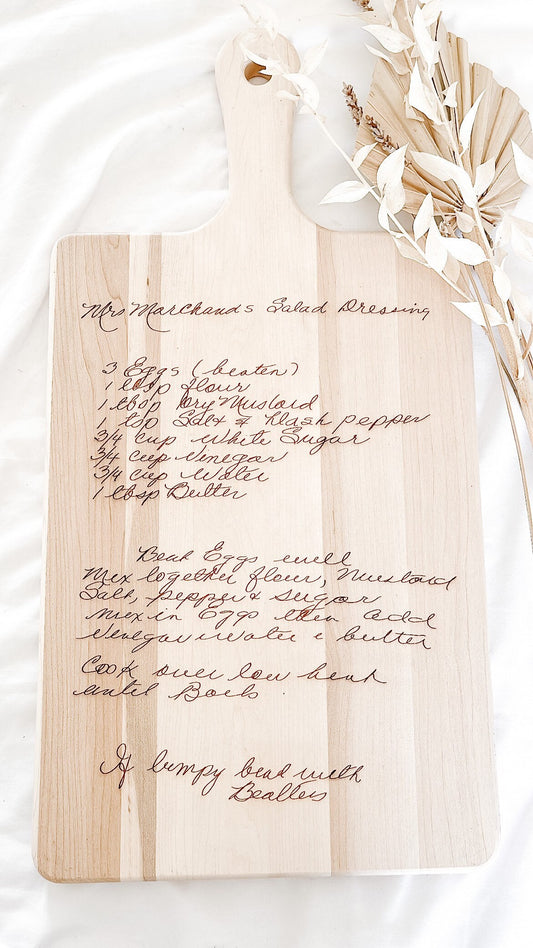 Mrs Marchands Salad Dressing
3 Eggs (beaten)
1 tbsp flour
1 tbsp Dry Mustard
1 tsp Salt & Dash pepper
3/4 cup White Sugar
3/4 cup Venegar
3/4 cup Water
1 tbsp Butter
Beat Eggs well
Mix together flour, Mustard
Salt, pepper & sugar
Mix in Eggs then add
Venegar Water & butter
Cook over low heat
until Boils
If lumpy beat with
Beatters